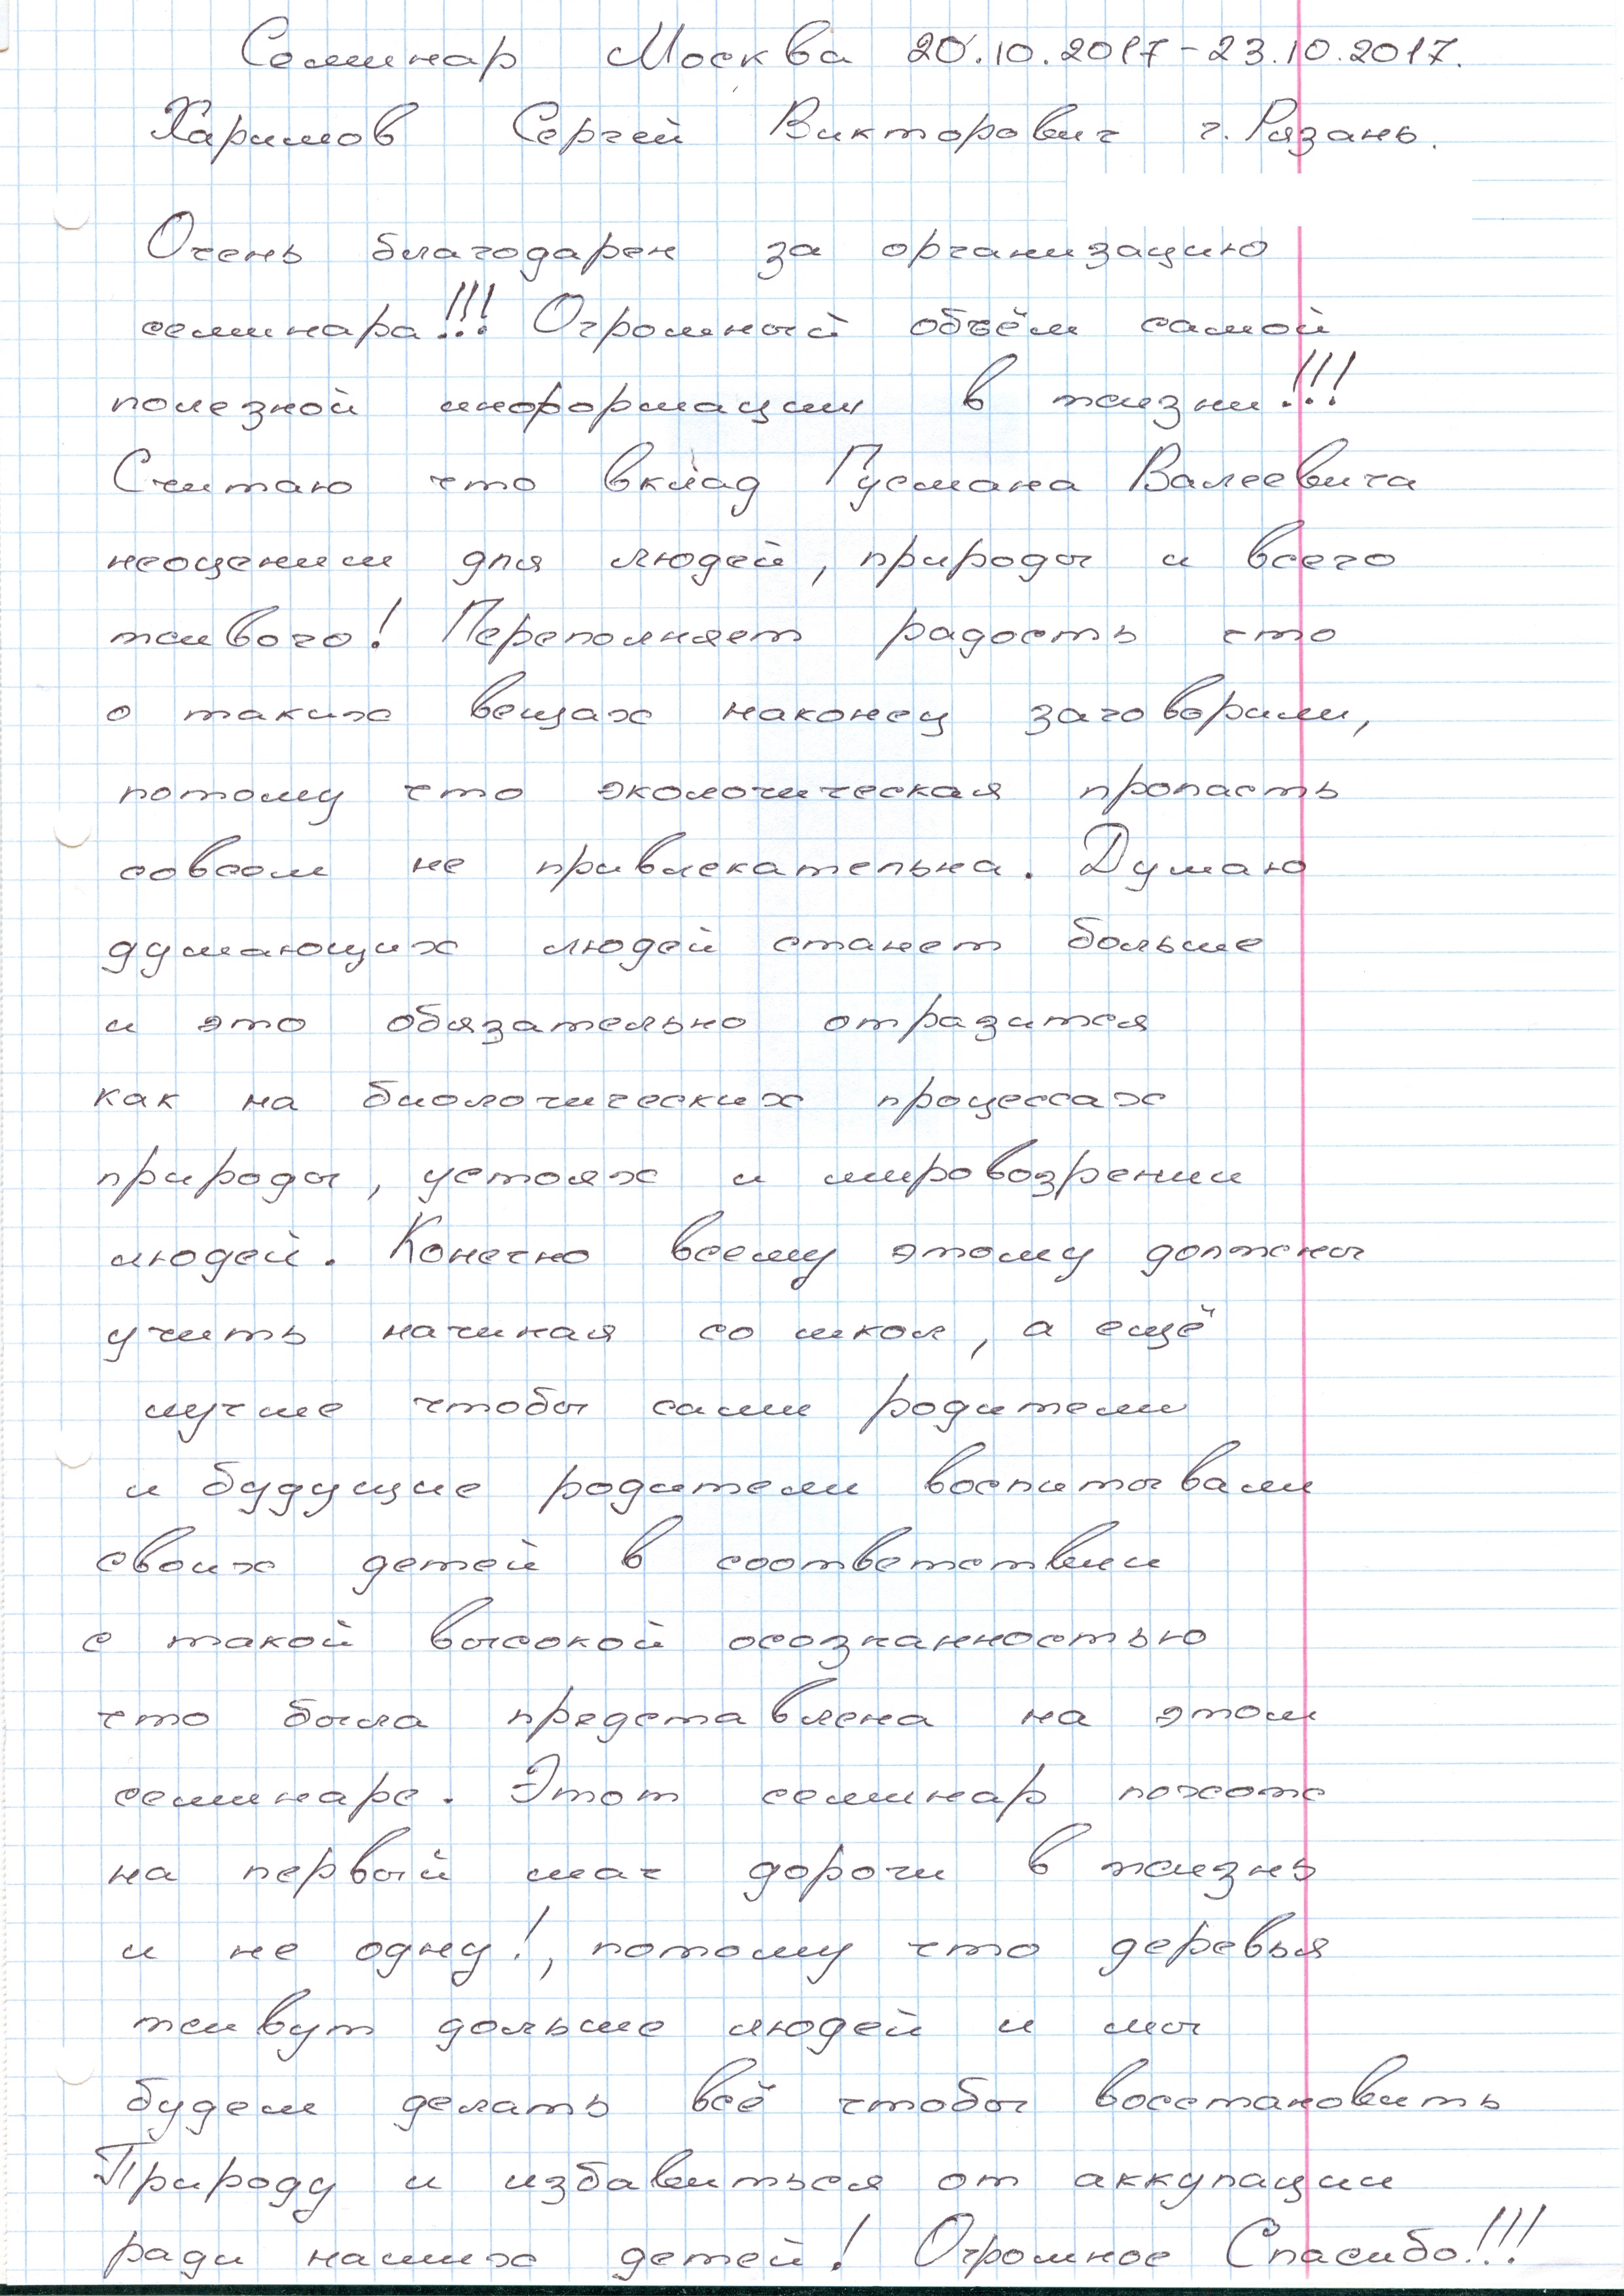 Семинар Москва 20.10.2017-23.10.2017.
Харимов Сергей Викторович г. Рязань.
Очень благодарен за организацию
семинара!!! Огромный объём самой
полезной информации в жизни!!!
Считаю что вклад Гусмана Валеевича
неоценим для людей, природы и всего
живого! Переполняет радость что
о таких вещах наконец заговорили,
потому что экологическая пропасть
совсем не привлекательна. Думаю
думающих людей станет больше
и это обязательно отразится
как на биологических процессах
природы, устоях и мировозрении
людей. Конечно всему этому должны
учить начиная со школ, а ещё
лучше чтобы сами родители
и будущие родители воспитывали
своих детей в соответствии
с такой высокой осознанностью
что была представлена на этом
семинаре. Этот семинар похож
на первый шаг дороги в жизнь
и не одну!, потому что деревья
живут дольше людей и мы
будем делать всё чтобы восстановить
Природу и избавиться от аккупации
ради наших детей! Огромное Спасибо!!!